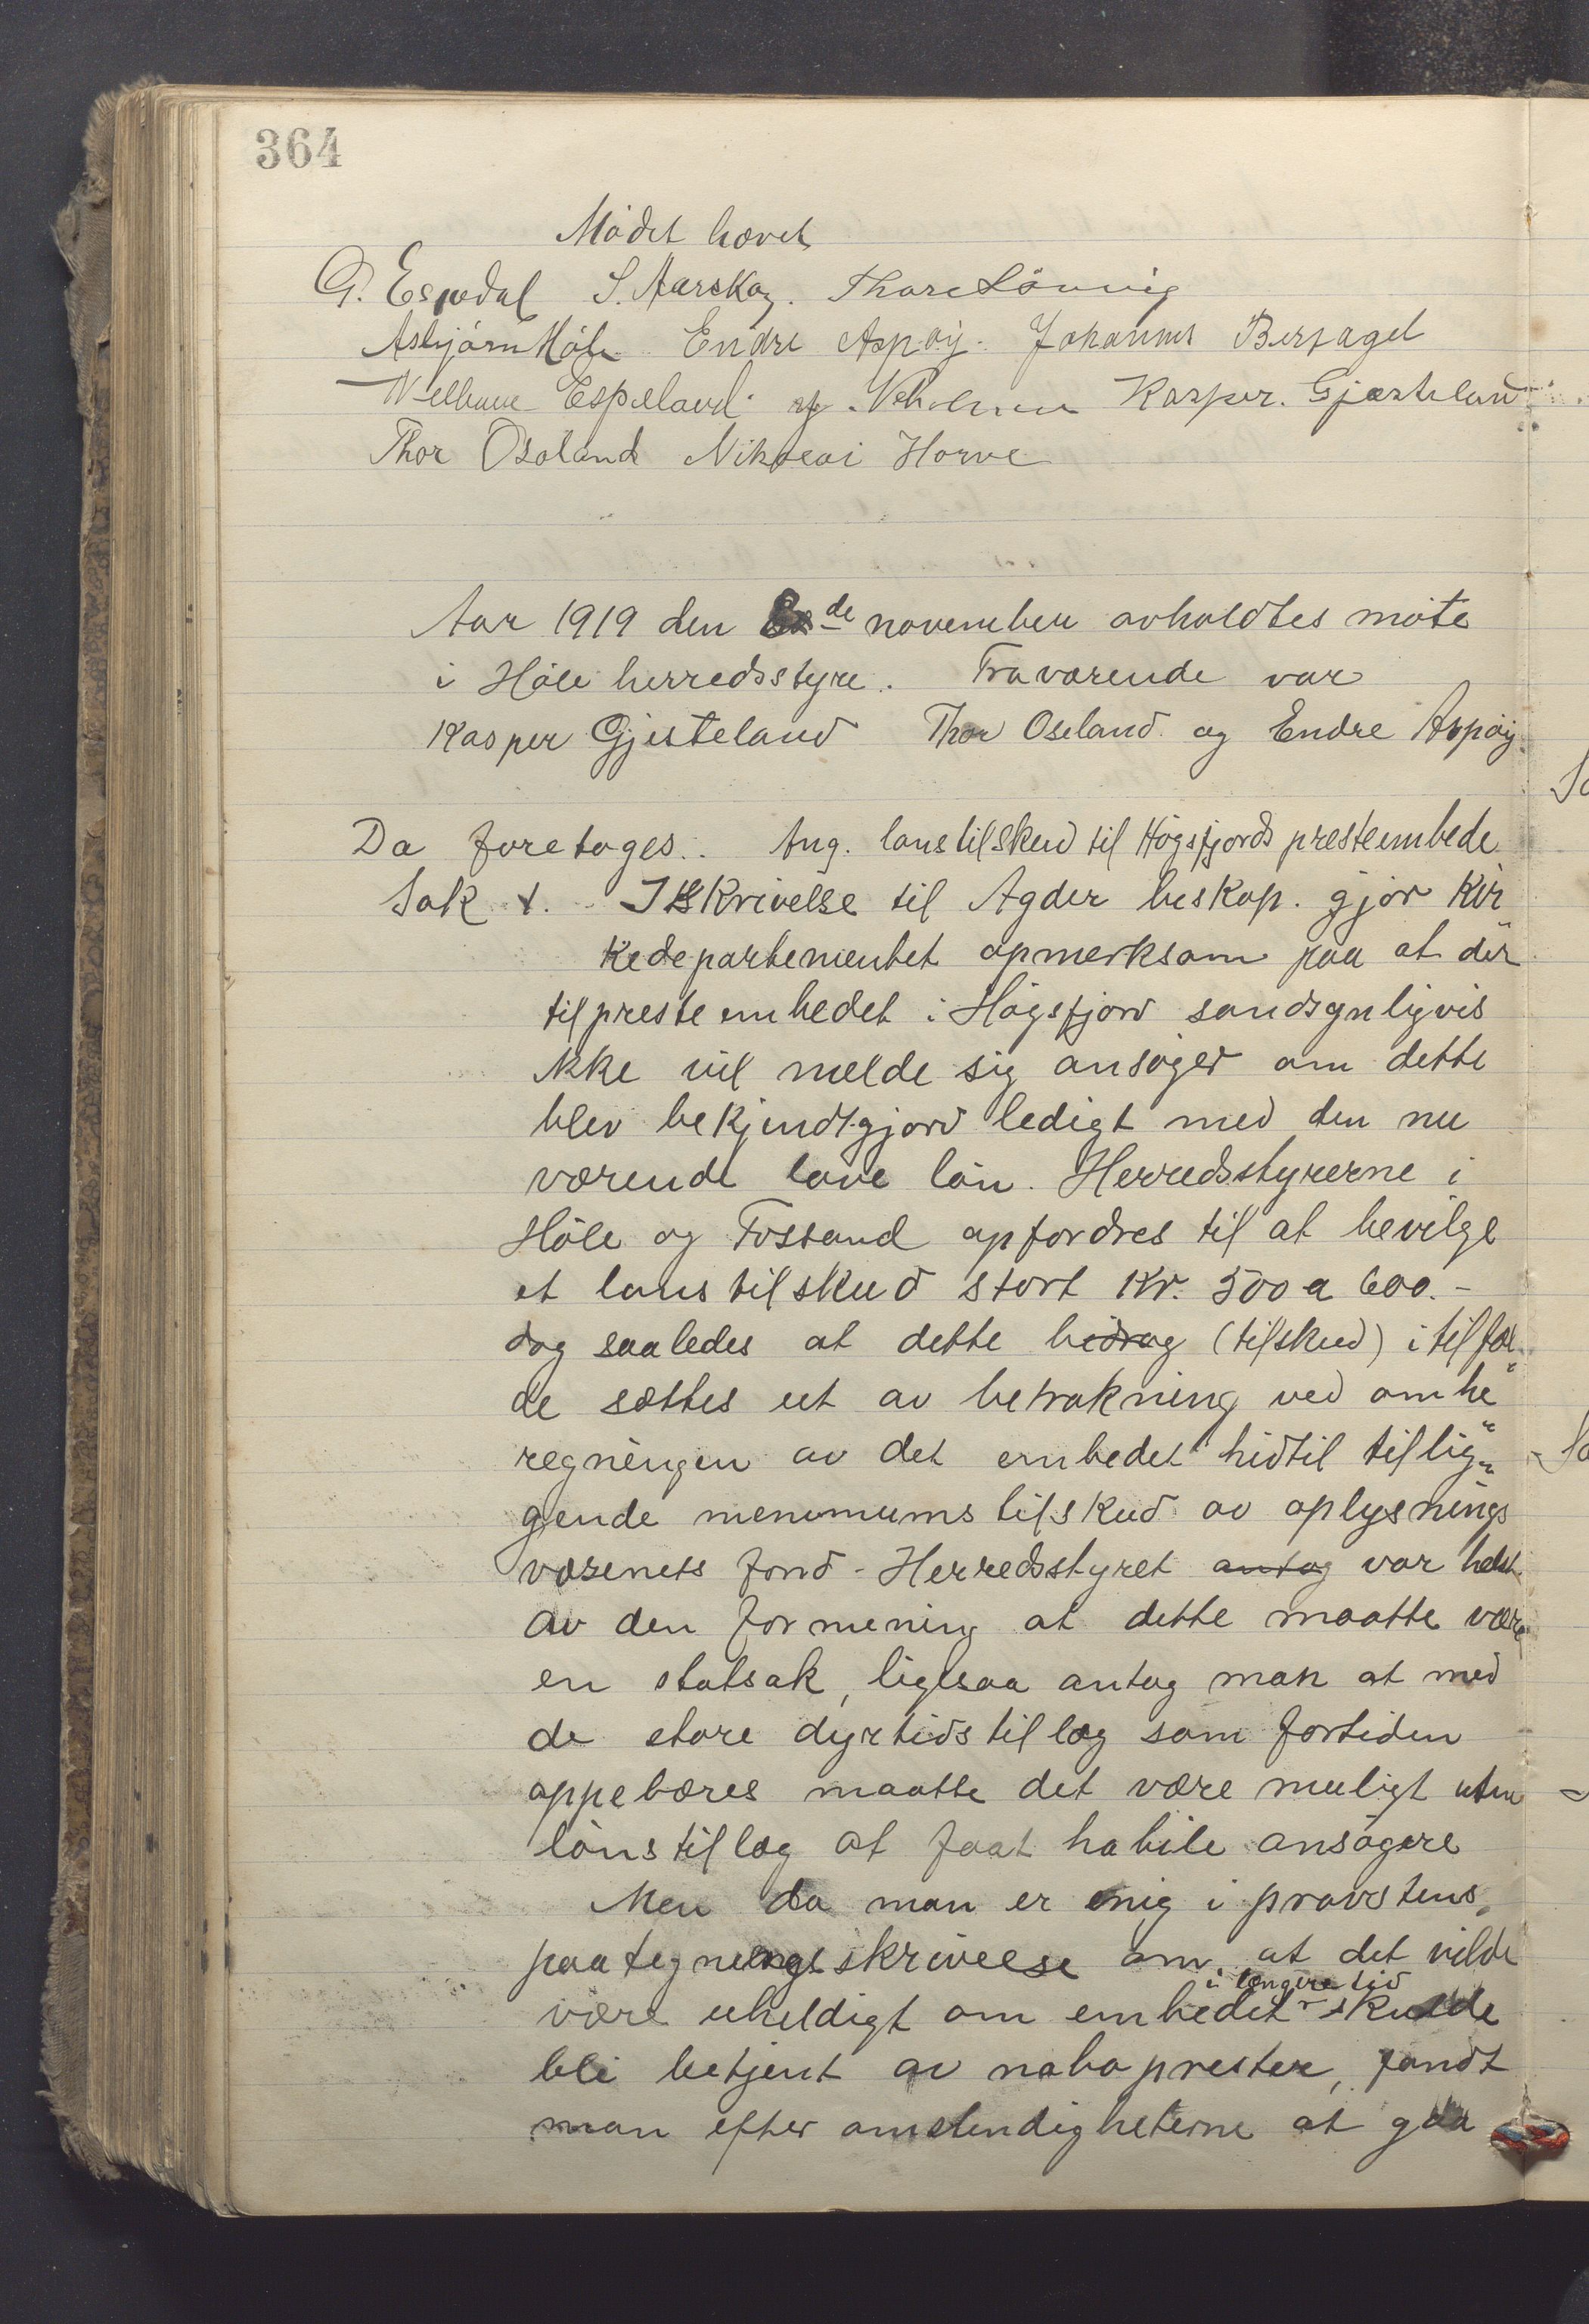 364
Mødet hævet
G. Espedal S. Aarskog. Thore Lönning
Asbjörn Höle Endre Aspöy. Johannes Bersagel
Espeland Kasper. Gjesteland
Thor Osaland Nikolai Horve
Aar 1919 den 8de november avholdtes möte
i Höle herredsstyre. Fraværende var
Kasper Gjesteland Thor Oseland og Endre Aspöy.
Da foretoges.. Ang. lönstilskud til Högsfjords presteembede
Sak 1. I skrivelse til Agder biskop. gjör kir
kedepartementet opmerksom paa at der
til presteembedet i Högsfjord sandsynligvis
ikke vil melde sig ansöger om dette
blev bekjendtgjord ledigt med den nu
værende lave lön. Herredsstyrerne i
Höle og Forsand opfordres til at bevilge
et lönstilskud stort Kr. 500 a 600.-
dog saaledes at dette bidrag (tilskud) i tilfæl
de sættes ut av betrakning ved ombe
regningen av det embedet hidtil tillig
gende menemums tilskud av oplysnings
væsenets fond - Herredsstyret antog var helst
av den formening at dette maatte være
en statsak, ligesaa antog man at med
de store dyrtidstillæg som fortiden
oppebæres maatte det være muligt uten
lönstillæg at faat habile ansögere
Men da man er enig i provstens
paategningsskrivelse om at det vilde
i længere tid
være uheldigt om embedet skulde
bli betjent av naboprester, fandt
man efter omstendigheterne at gaa